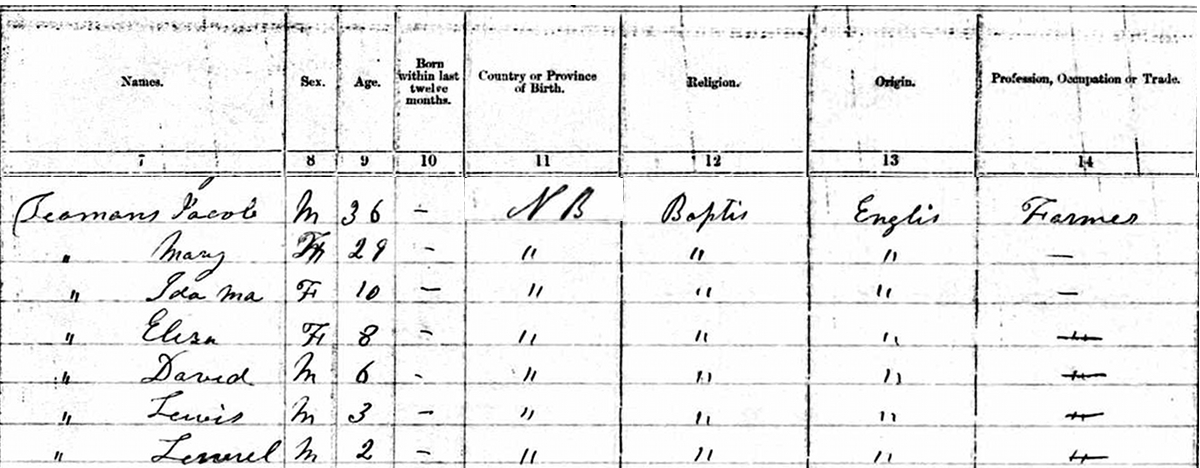 Names. Sex. Age. Born within last twelve months. Country or Province of Birth. Religion. Origin. Profession, Occupation or Trade.
7 8 9 10 11 12 13 14
Yeomans Jacob M 36 – N B Baptis Englis Farmer
" Mary F 29 – " " " –
" Ida Ma F 10 – " " " –
" Eliza F 8 – " " " "
" David M 6 – " " " "
" Lewis M 3 – " " " "
" Lemuel M 2 – " " " "